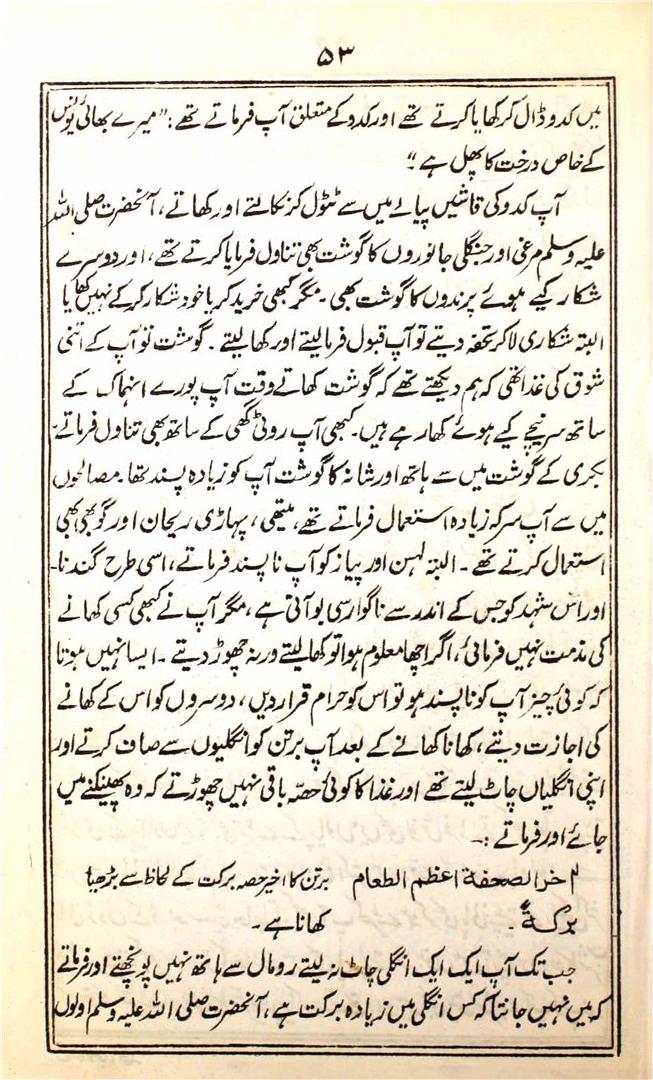 ۵۳
میں کدو ڈال کر کھایا کرتے تھے اور کدو کے متعلق آپ فرماتے تھے: "میرے بھائی یونسؑ
کے خاص درخت کا پھل ہے"
آپ کدو کی قاشیں پیالے میں سے ٹٹول کر نکالتے اور کھاتے، آنحضرت صلی اللہ
علیہ وسلم مرغی اور جنگلی جانوروں کا گوشت بھی تناول فرمایا کرتے تھے، اور دوسرے
شکار کیے ہوئے پرندوں کا گوشت بھی۔ مگر کبھی خرید کر یا خود شکار کر کے نہیں کھایا
البتہ شکاری لاکر تحفہ دیتے تو آپ قبول فرما لیتے اور کھا لیتے۔ گوشت تو آپ کے اتنی
شوق کی غذا تھی کہ ہم دیکھتے تھے کہ گوشت کھاتے وقت آپ پورے انہماک کے
ساتھ سر نیچے کیے ہوئے کھا رہے ہیں۔ کبھی آپ روٹی گھی کے ساتھ بھی تناول فرماتے۔
بکری کے گوشت میں سے ہاتھ اور شانہ کا گوشت آپ کو زیادہ پسند تھا۔ مصالحوں
میں سے آپ سرکہ زیادہ استعمال فرماتے تھے، میتھی، پہاڑی ریحان اور گوبھی بھی
استعمال کرتے تھے۔ البتہ لہسن اور پیاز کو آپ ناپسند فرماتے، اسی طرح گندنا۔
اور اس شہد کو جس کے اندر سے ناگوار سی بو آتی ہے، مگر آپ نے کبھی کسی کھانے
کی مذمت نہیں فرمائی، اگر اچھا معلوم ہوا تو کھا لیتے ورنہ چھوڑ دیتے۔ ایسا نہیں ہوتا
کہ کوئی چیز آپ کو ناپسند ہو تو اس کو حرام قرار دیں، دوسروں کو اس کے کھانے
کی اجازت دیتے، کھانا کھانے کے بعد آپ برتن کو انگلیوں سے صاف کرتے اور
اپنی انگلیاں چاٹ لیتے تھے اور غذا کا کوئی حصّہ باقی نہیں چھوڑتے کہ وہ پھینکنے میں
جائے اور فرماتے :۔
اٰخر الصحفة اعظم الطعام برتن کا اخیر حصہ برکت کے لحاظ سے بڑھیا
برکةً ۔ کھانا ہے۔
جب تک آپ ایک ایک انگلی چاٹ نہ لیتے رومال سے ہاتھ نہیں پونچھتے اور فرماتے
کہ میں نہیں جانتا کہ کس انگلی میں زیادہ برکت ہے، آنحضرت صلی اللہ علیہ وسلم اولوں